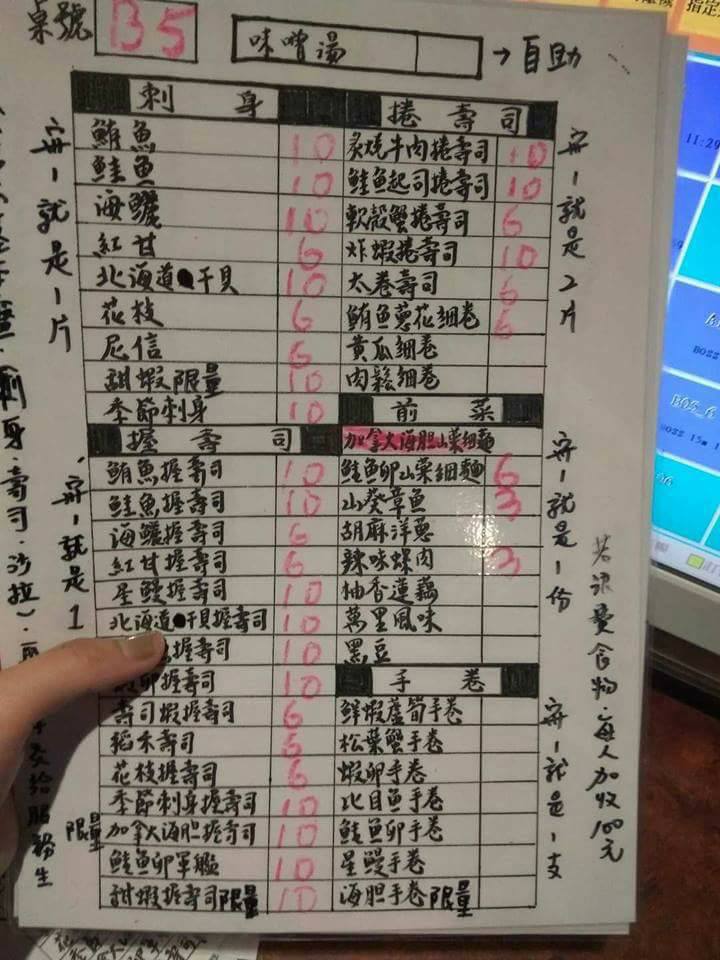 桌號 B5
味噌湯 → 自助
刺身
寫1就是1片
鮪魚 10
鮭魚 10
海鱺 10
紅甘 6
北海道干貝 10
花枝 6
尼信 6
甜蝦限量 10
季節刺身 10
握壽司
寫1就是1
鮪魚握壽司 10
鮭魚握壽司 10
海鱺握壽司 6
紅甘握壽司 6
星鰻握壽司 10
北海道干貝握壽司 10
握壽司 10
卵握壽司 10
壽司蝦握壽司 6
稻禾壽司 6
花枝握壽司 6
季節刺身握壽司 10
限量 加拿大海胆握壽司 10
鮭魚卵軍艦 10
甜蝦握壽司限量 10
捲壽司
寫1就是2片
炙燒牛肉捲壽司 10
鮭魚起司捲壽司 10
軟殼蟹捲壽司 6
炸蝦捲壽司 10
太卷壽司 6
鮪魚蔥花細卷 6
黃瓜細卷
肉鬆細卷
前菜
寫1就是1份
加拿大海胆山藥細麵
鮭魚卵山藥細麵 6
山葵章魚 3
胡麻洋蔥
辣味螺肉 3
柚香蓮藕
萬里風味
黑豆
手卷
寫1就是1支
鮮蝦蘆筍手卷
松葉蟹手卷
蝦卵手卷
比目魚手卷
鮭魚卵手卷
星鰻手卷
海胆手卷限量
若浪費食物,每人加收100元
刺身.壽司.沙拉)
交給服務生